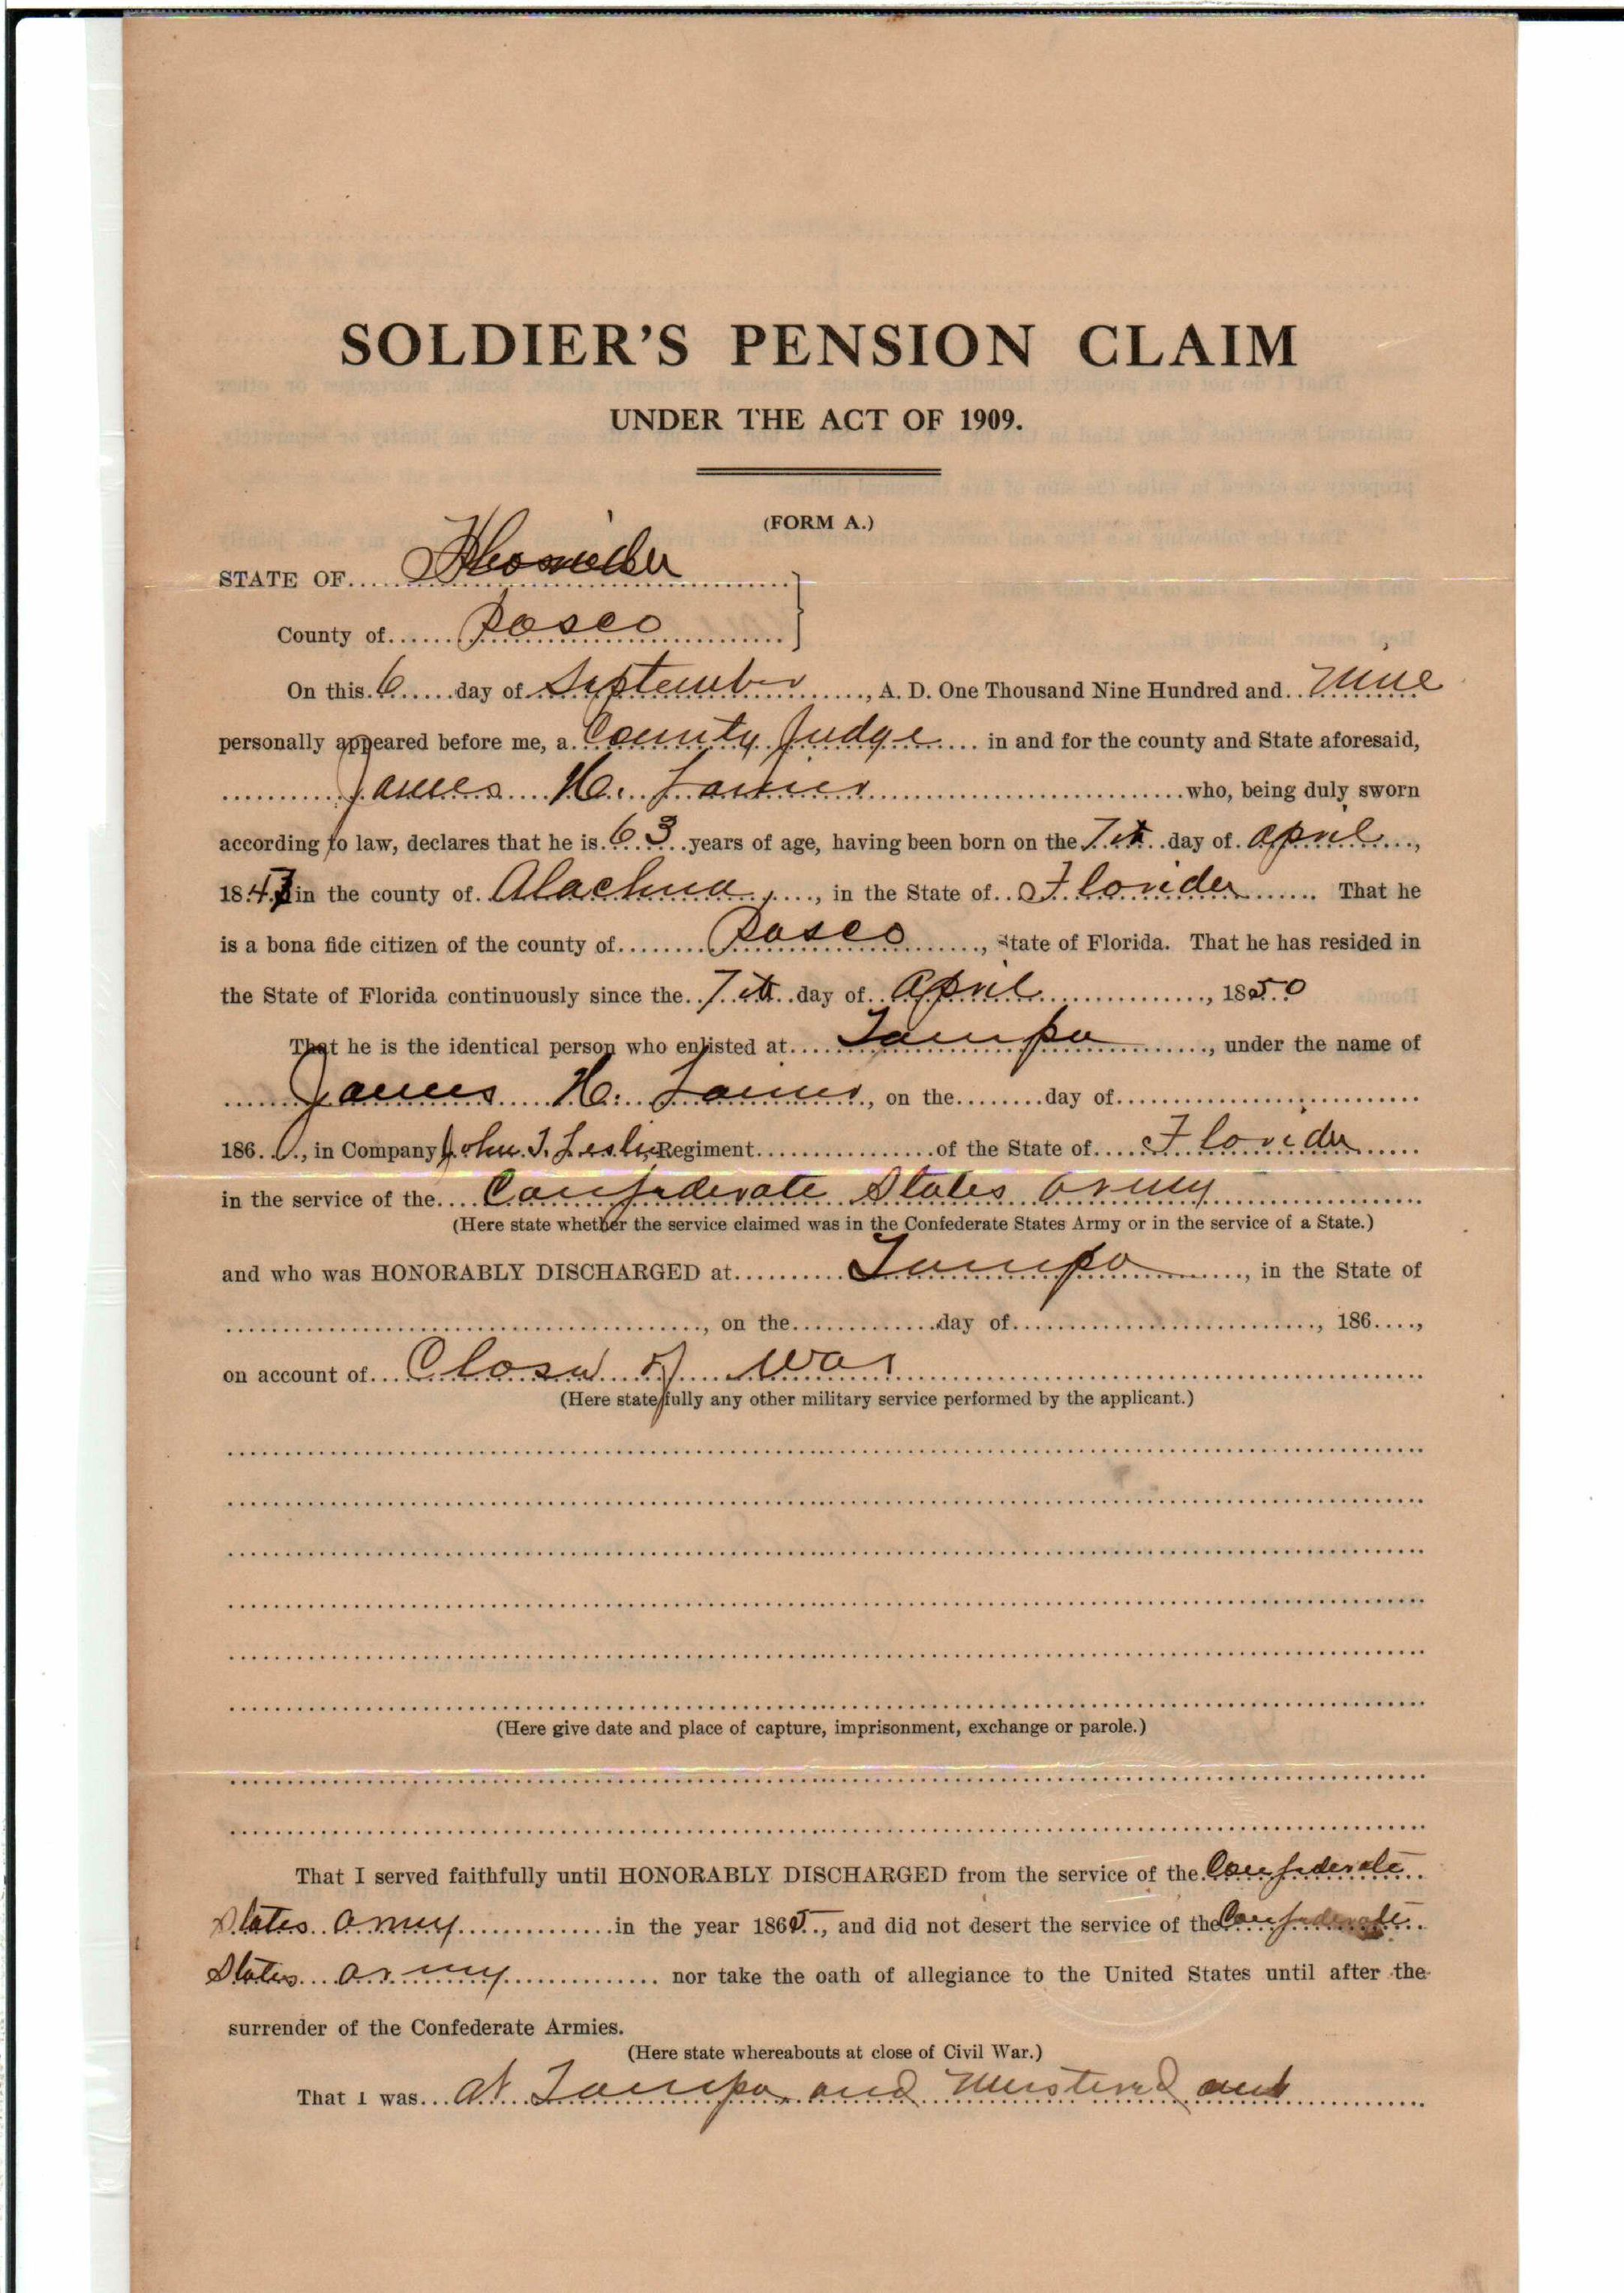 SOLDIER'S PENSION CLAIM
UNDER THE ACT OF 1909.
(FORM A.)
STATE OF Florida
County of Pasco
On this 6 day of September, A. D. One Thousand Nine Hundred and Nine
personally appeared before me, a County Judge in and for the county and State aforesaid,
James H. Lanier who, being duly sworn
according to law, declares that he is 63 years of age, having been born on the 7th day of April,
184 in the county of Alachua, in the State of Florida. That he
is a bona fide citizen of the county of Pasco, State of Florida. That he has resided in
the State of Florida continuously since the 7th day of April, 1850
That he is the identical person who enlisted at Tampa, under the name of
James H. Lanier, on the day of
186, in Company John T. Leslie Regiment of the State of Florida
in the service of the Confederate States Army
(Here state whether the service claimed was in the Confederate States Army or in the service of a State.)
and who was HONORABLY DISCHARGED at Tampa, in the State of
, on the day of, 186,
on account of Close of War
(Here state fully any other military service performed by the applicant.)
(Here give date and place of capture, imprisonment, exchange or parole.)
That I served faithfully until HONORABLY DISCHARGED from the service of the Confederate
States Army in the year 1865, and did not desert the service of the Confederate
States Army nor take the oath of allegiance to the United States until after the
surrender of the Confederate Armies.
(Here state whereabouts at close of Civil War.)
That I was at Tampa and Mustered out